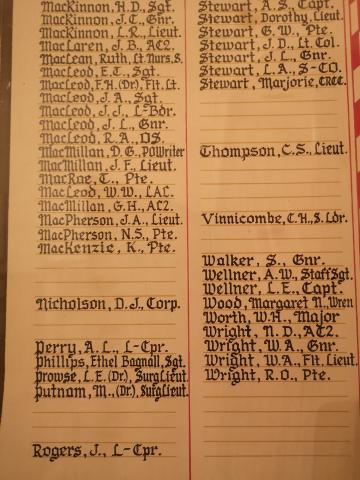 MacKinnon, H.D., Sgt.
MacKinnon, J.C., Gnr.
MacKinnon, L.R., Lieut.
MacLaren, J.B., AC2.
MacLean, Ruth, Lt. Nurs. S.
MacLeod, E.C., Sgt.
MacLeod, F.H. (Dr), Flt. Lt.
MacLeod, J.A., Sgt.
MacLeod, J.J., L-Bdr.
MacLeod, J.L., Gnr.
MacLeod, R.A., OS.
MacMillan, D.G., POWriter
MacMillan, J.F., Lieut.
MacRae, T., Pte.
MacLeod, W.W., LAC.
MacMillan, G.H., AC2.
MacPherson, J.A., Lieut.
MacPherson, N.S., Pte.
MacKenzie, K., Pte.
Nicholson, D.J., Corp.
Perry, A.L., L-Cpr.
Phillips, Ethel Bagnall, Sgt.
Prowse, L.E. (Dr.), SurgLieut.
Putnam, M., (Dr), SurgLieut.
Rogers, J., L-Cpr.
Stewart, A.S., Capt.
Stewart, Dorothy, Lieut.
Stewart, G.W., Pte.
Stewart, J.D., Lt. Col.
Stewart, J.L., Gnr.
Stewart, L.A., S-CO.
Stewart, Marjorie, CRCC.
Thompson, C.S., Lieut.
Vinnicombe, C.H., S. Ldr.
Walker, S., Gnr.
Wellner, A.W., StaffSgt.
Wellner, L.E., Capt.
Wood, Margaret N., Wren
Worth, W.H., Major
Wright, N.D., AC2.
Wright, W.A., Gnr.
Wright, W.A., Flt. Lieut.
Wright, R.O., Pte.